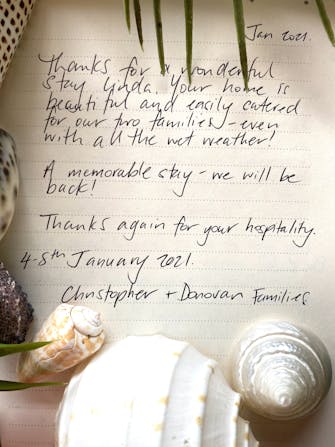 Jan 2021.
Thanks for a wonderful
stay Linda. Your home is
beautiful and easily catered
for our two families - even
with all the wet weather!
A memorable stay - we will be
back!
Thanks again for your hospitality.
4-8th January 2021.
Christopher + Donovan Families